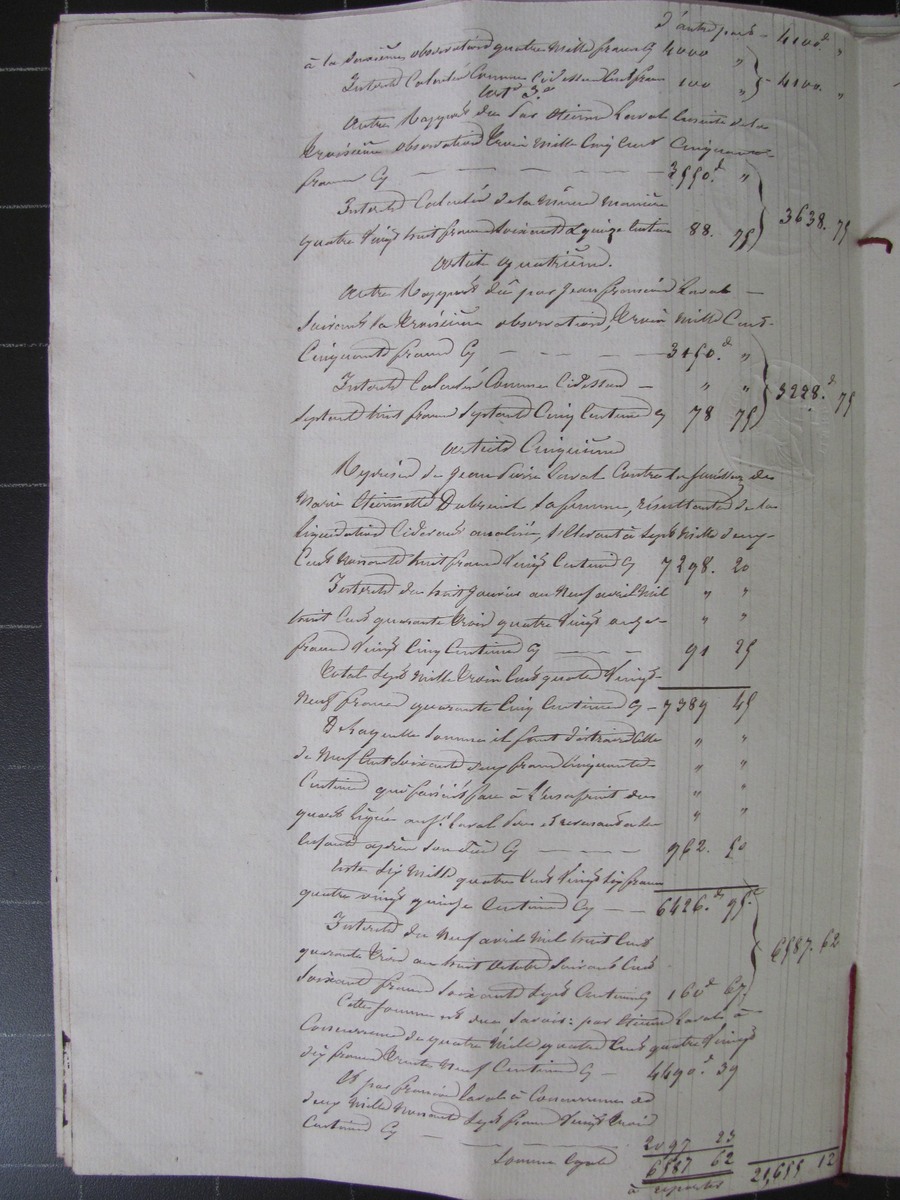 d'autre part — 4100.d "
à la deuxième observation quatre mille francs Cy 4000 "
Interets Calculés Comme Cidessus Cent francs 100 " } — 4100. "
art. 3.e
Autre Rapport du par Etienne Laval Suivant la
troisieme observation trois mille Cinq Cent Cinquante
francs Cy — — — — — — — 3550.d "
Interets Calculés de la même maniere
quatre vingt huit francs soixante quinze Centimes 88. 75 } 3638. 75
article quatrième.
Autre Rapport dû par Jean francois Laval —
Suivant la troisieme observation, trois mille Cent
Cinquante francs Cy — — — — 3150.d "
Interets Calculés Comme Cidessus — " "
septante huit francs septante Cinq Centimes Cy 78 75 } 3228.d 75
article Cinquième
Reprises de Jean Pierre Laval Contre la succession de
Marie Etiennette Dubreuil sa femme, résultante de la
liquidation Cidevant s'élevant à sept mille deux
Cent nonante huit francs vingt Centimes Cy 7298. 20
Interets du huit Janvier au neuf avril mil " "
huit Cent quarante trois quatre vingt onze " "
francs vingt Cinq Centimes Cy — — — 91 25
Total sept mille trois Cent quatre vingt
Neuf francs quarante Cinq Centimes Cy — 7389 45
De laquelle somme il faut distraire Celle " "
de Neuf Cent soixante deux francs Cinquante " "
Centimes qui faisait face à L'usufruit du " "
quart légué au S.r Laval Pere et revenant à ses " "
enfants après son décès Cy — — — — 962. 50
Reste six mille quatre Cent vingt six francs
quatre vingt quinze Centimes Cy — — 6426.d 95.c
Interets du Neuf avril mil huit Cent
quarante trois au huit octobre suivant Cent
soixante francs soixante sept Centimes Cy 160d 67. } 6587. 62
Cette somme est due savoir: par Etienne Laval à
Concurrence de quatre mille quatre Cent quatre vingt
dix francs trente Neuf Centimes Cy — 4490.d 39
Et par francois Laval à Concurrence de
deux mille nonante sept francs vingt trois
Centimes Cy — — — — 2097 23
Somme Egale 6587 62 21,655 12
à reporter